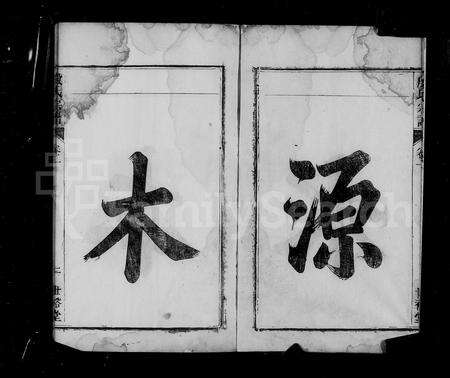 源
木
FamilySearch